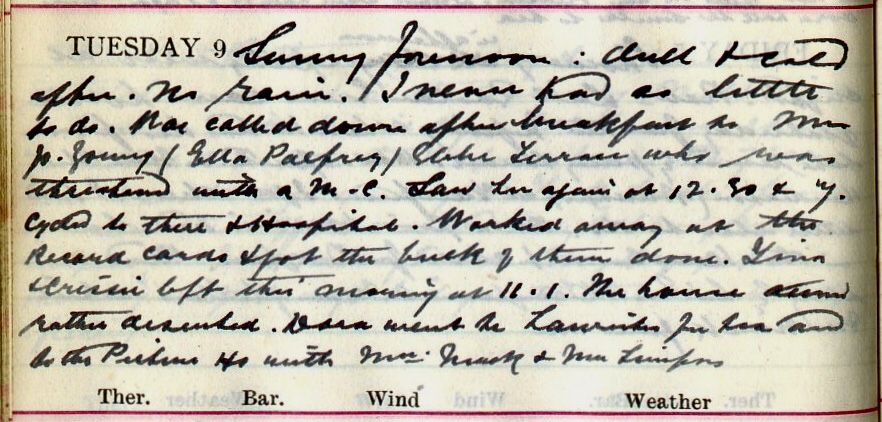 TUESDAY 9 Sunny forenoon : dull & cold
after. No rain. I never had so little
to do. Was called down after breakfast to Mrs
P. Young (Ella Palfrey) Glebe Terrace who was
threatened with a M-C. Saw her again at 12.30 & 7.
Cycled to there & Hospital. Worked away at the
Record cards & got the bulk of them done. Tina
& Crissie left this morning at 11.1. The house
rather deserted. Dora went to for tea and
to the Picture Ho with Mrs. Mack & Mrs Simpson
Ther. Bar. Wind Weather